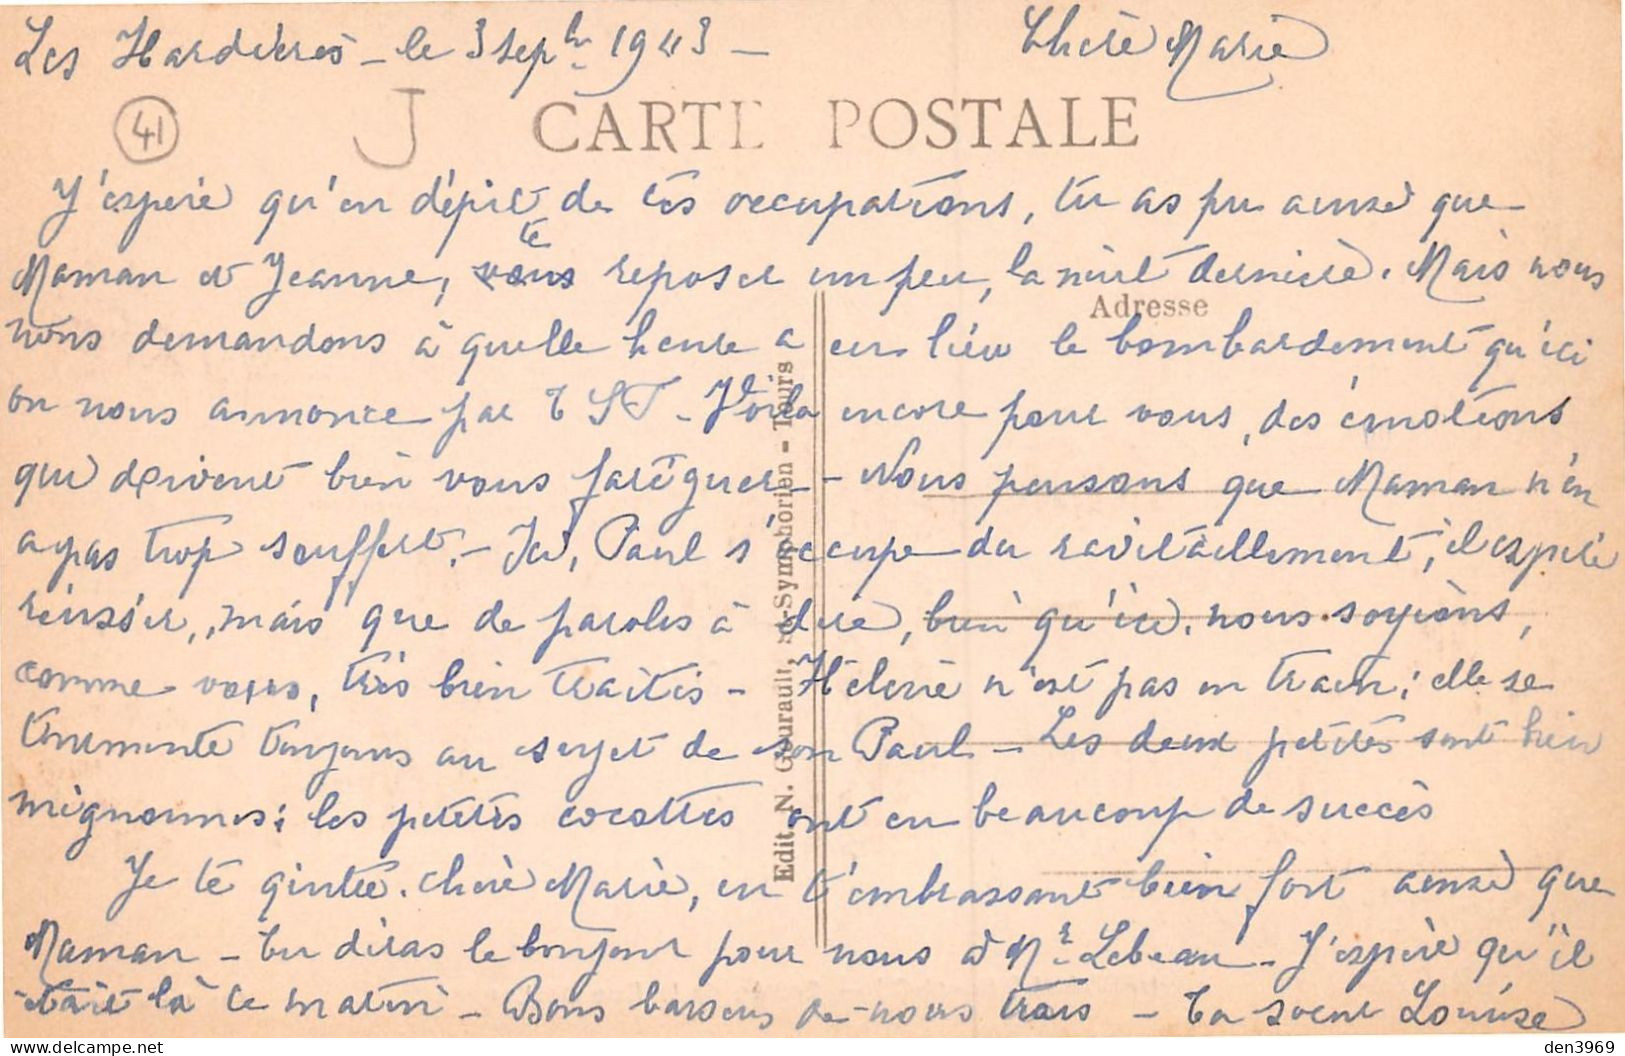 Les Hardières - le 3 septbre 1943 -
Chère Marie
41 J CARTE POSTALE
J'espère qu'en dépit de tes occupations, tu as pu ainsi que
Maman et Jeanne, te reposer un peu, la nuit dernière. Mais nous
Adresse
nous demandons à quelle heure a eu lieu le bombardement qu'ici
on nous annonce par TSF - Voilà encore pour vous, des émotions
qui doivent bien vous fatiguer - Nous pensons que Maman n'en
a pas trop souffert. - Ici, Paul s'occupe du ravitaillement, il espère
réussir, mais que de paroles à dire, bien qu'ici, nous soyions,
comme vous, très bien traités - Hélène n'est pas en train; elle se
tourmente toujours au sujet de son Paul - Les deux petites sont bien
mignonnes; les petites cocottes ont eu beaucoup de succès
Je te quitte, chère Marie, en t'embrassant bien fort ainsi que
Maman - Tu diras le bonjour pour nous à Mr Lebeau - J'espère qu'il
était là ce matin - Bons baisers de nous trois - Ta soeur Louise
Edit. N. Gourault, St-Symphorien - Tours
den3969